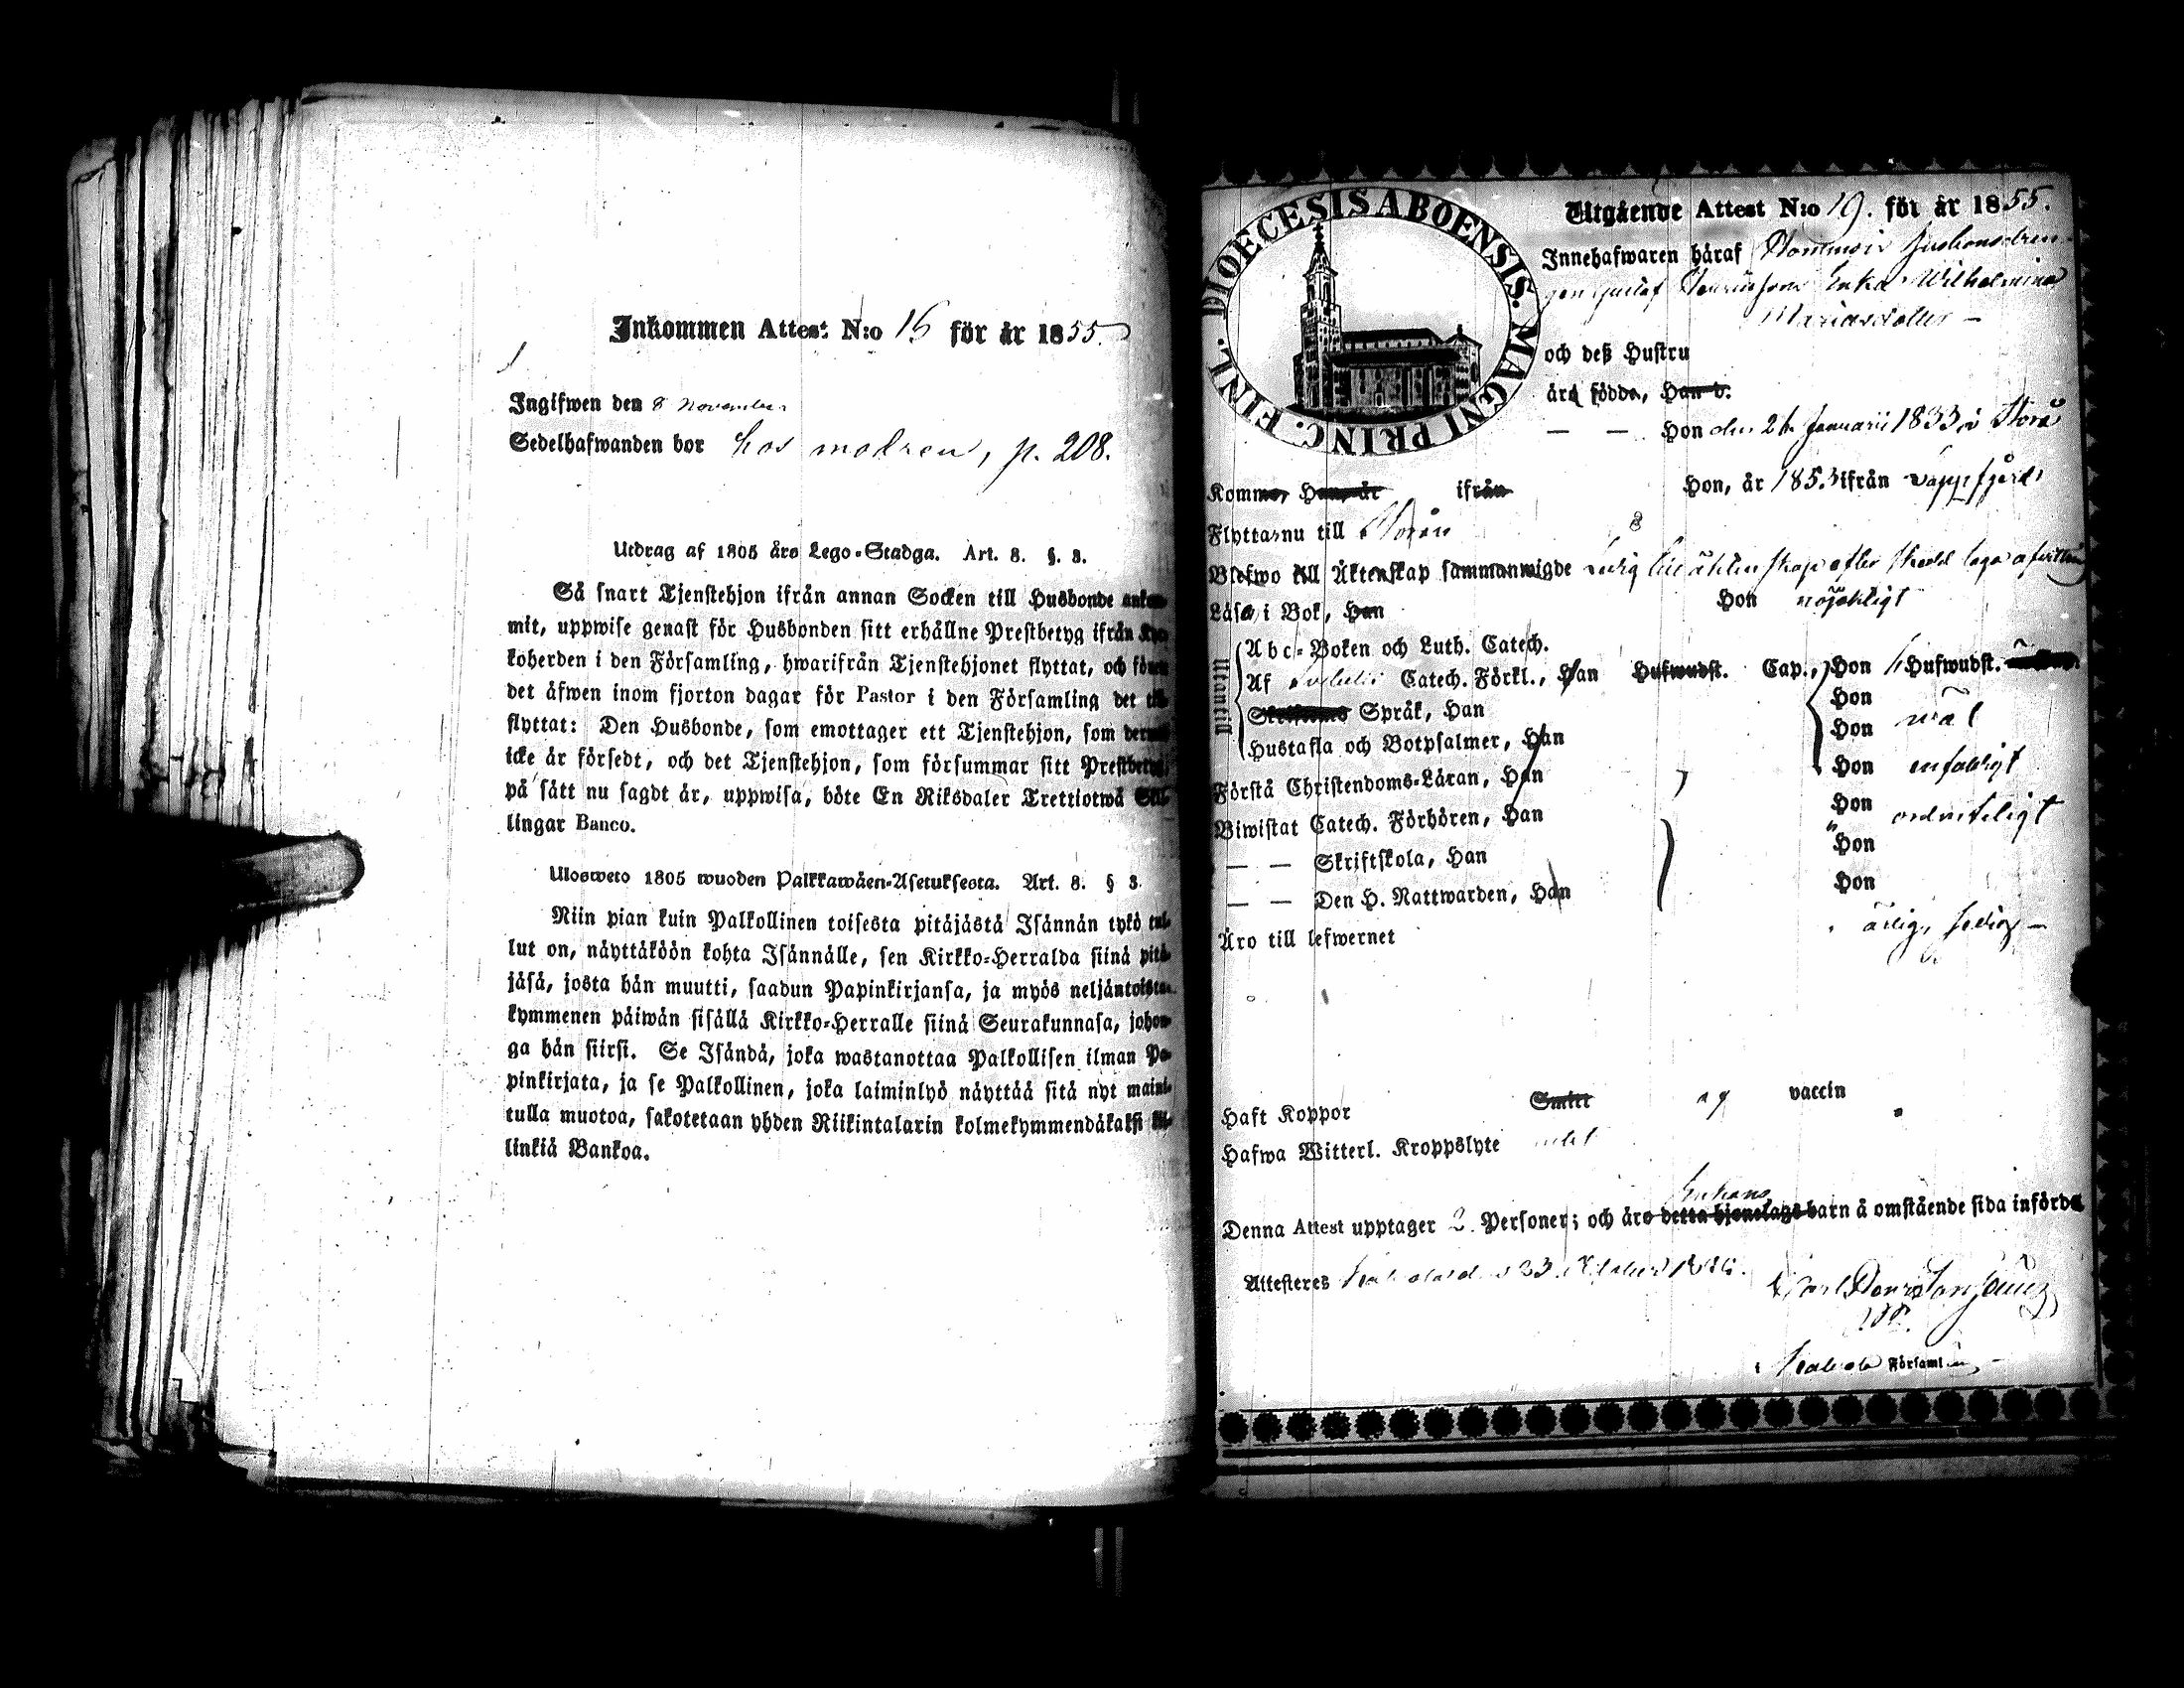 Inkommen Attest N:o 16 för år 1855.
Ingifwen den 8 november
Sedelhafwanden bor hos modren, p. 208.
Utdrag af 1805 års Lego-Stadga. Art. 8. §. 3.
Så snart Tjenstehjon ifrån annan Socken till Husbonde
mit, uppwise genast för Husbonden sitt erhållne Prestbetyg ifrån
koherden i den Församling, hwarifrån Tjenstehjonet flyttat, och
det äfwen inom fjorton dagar för Pastor i den Församling det
flyttat: Den Husbonde, som emottager ett Tjenstehjon, som
icke är försedt, och det Tjenstehjon, som försummar sitt
på sätt nu sagdt är, uppwisa, böte En Riksdaler Trettiotwå
lingar Banco.
Ulosweto 1805 wuoden Palkkawäen-Asetuksesta. Art. 8. § 3.
Niin pian kuin Palkollinen toisesta pitäjästä Isännän tykö
lut on, näyttäköön kohta Isännälle, sen Kirkko-Herralda siinä
jäsä, josta hän muutti, saadun Papinkirjansa, ja myös neljäntoista-
kymmenen päiwän sisällä Kirkko-Herralle siinä Seurakunnasa, johon-
ga hän siirsi. Se Isändä, joka wastanottaa Palkollisen ilman Pa-
pinkirjata, ja se Palkollinen, joka laiminlyö näyttää sitä nyt maini-
tulla muotoa, sakotetaan yhden Riikintalarin kolmekymmendäkaksi
linkiä Bankoa.
DIOECESIS ABOENSIS. MAGNI PRINC. FINL.
Utgående Attest N:o 19. för år 1855.
Innehafwaren häraf
Gustaf Enka Wilhelmina
Mariasdotter
och deß Hustru
äro födde, Han d.
— — Hon den Januarii 1833 i Storå
Komma, Han, år ifrån Hon, år 1853 ifrån Lappfjärd
Flyttar nu till Storån
Blefwo till Äktenskap sammanwigde Ledig till äktenskap efter skedd
Läsa i Bok, Han Hon nöjaktigt
Utantill
Abc-Boken och Luth. Catech.
Af Catech. Förkl., Han Hufwudst. Cap., Hon Hufwudst.
Språk, Han Hon
Hustafla och Botpsalmer, Han Hon wäl
Förstå Christendoms-Läran, Han Hon enfaldigt
Biwistat Catech. Förhören, Han Hon ordenteligt
— — Skriftskola, Han Hon "
— — Den H. Nattwarden, Han Hon
Äro till lefwernet ärlig,
Haft Koppor vaccin
Hafwa Witterl. Kroppslyte
Enkans
Denna Attest upptager 2 Personer; och äro detta hjonelags barn å omstående sida införda
Attesteres
Carl
Församling